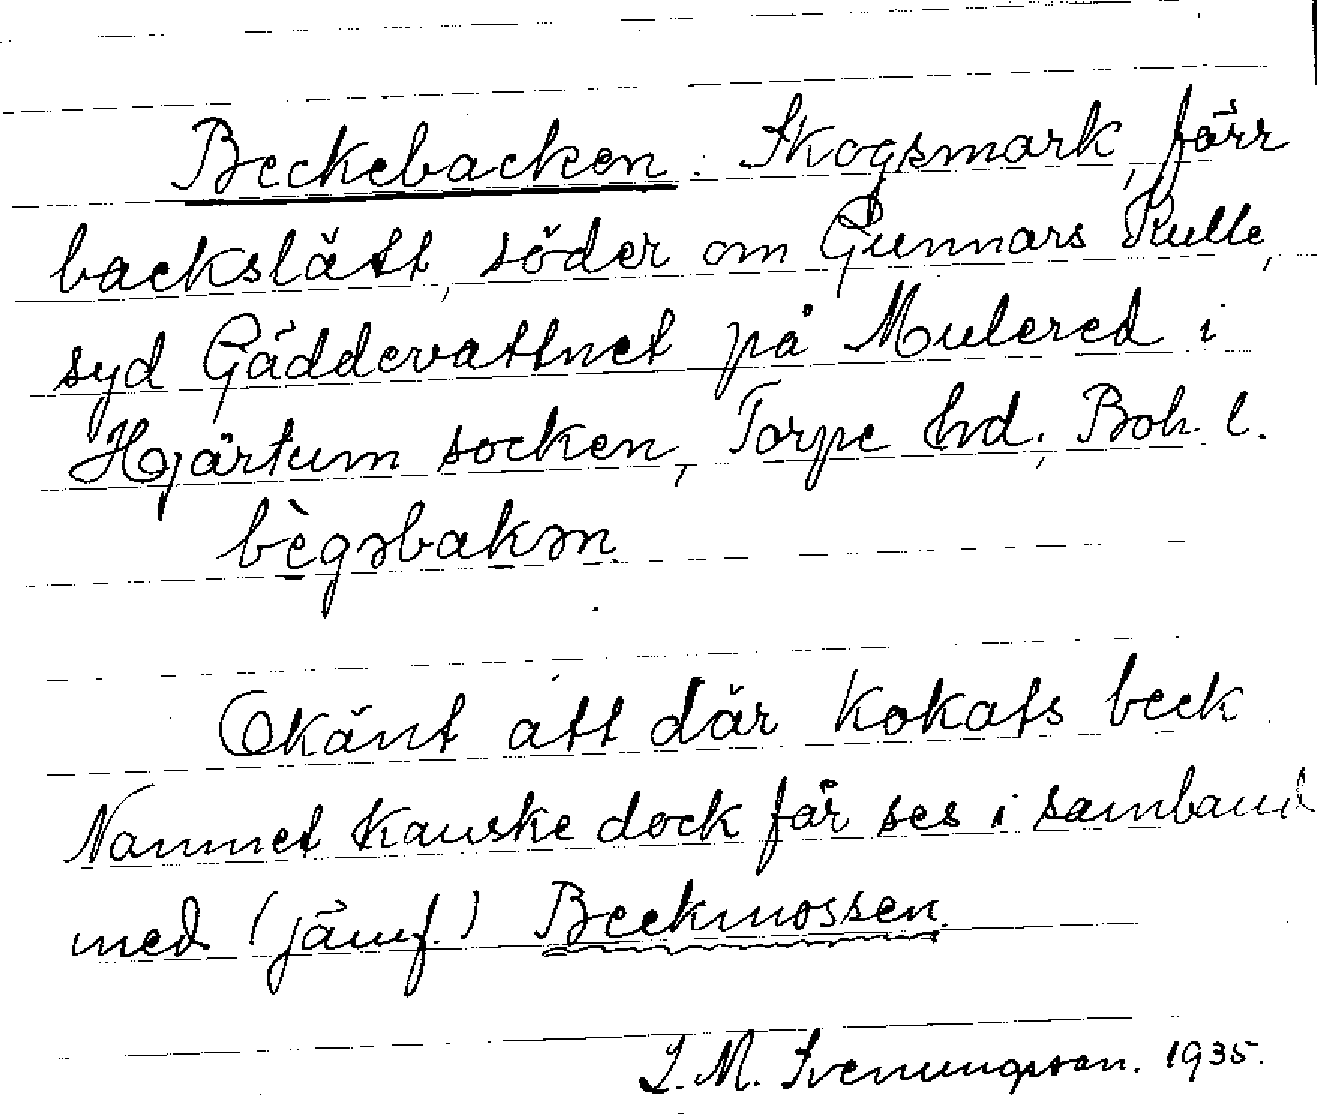 Beckebacken. Skogsmark, förr
backslätt, söder om Gunnars Kulle,
syd Gäddevattnet på Mulered i
Hjärtum socken, Torpe hd; Boh. l.
bègəbakən.
Okänt att där kokats beck.
Namnet kanske dock får ses i samband
med (jämf.) Beckmossen.
L. M. Svenungsson. 1935.